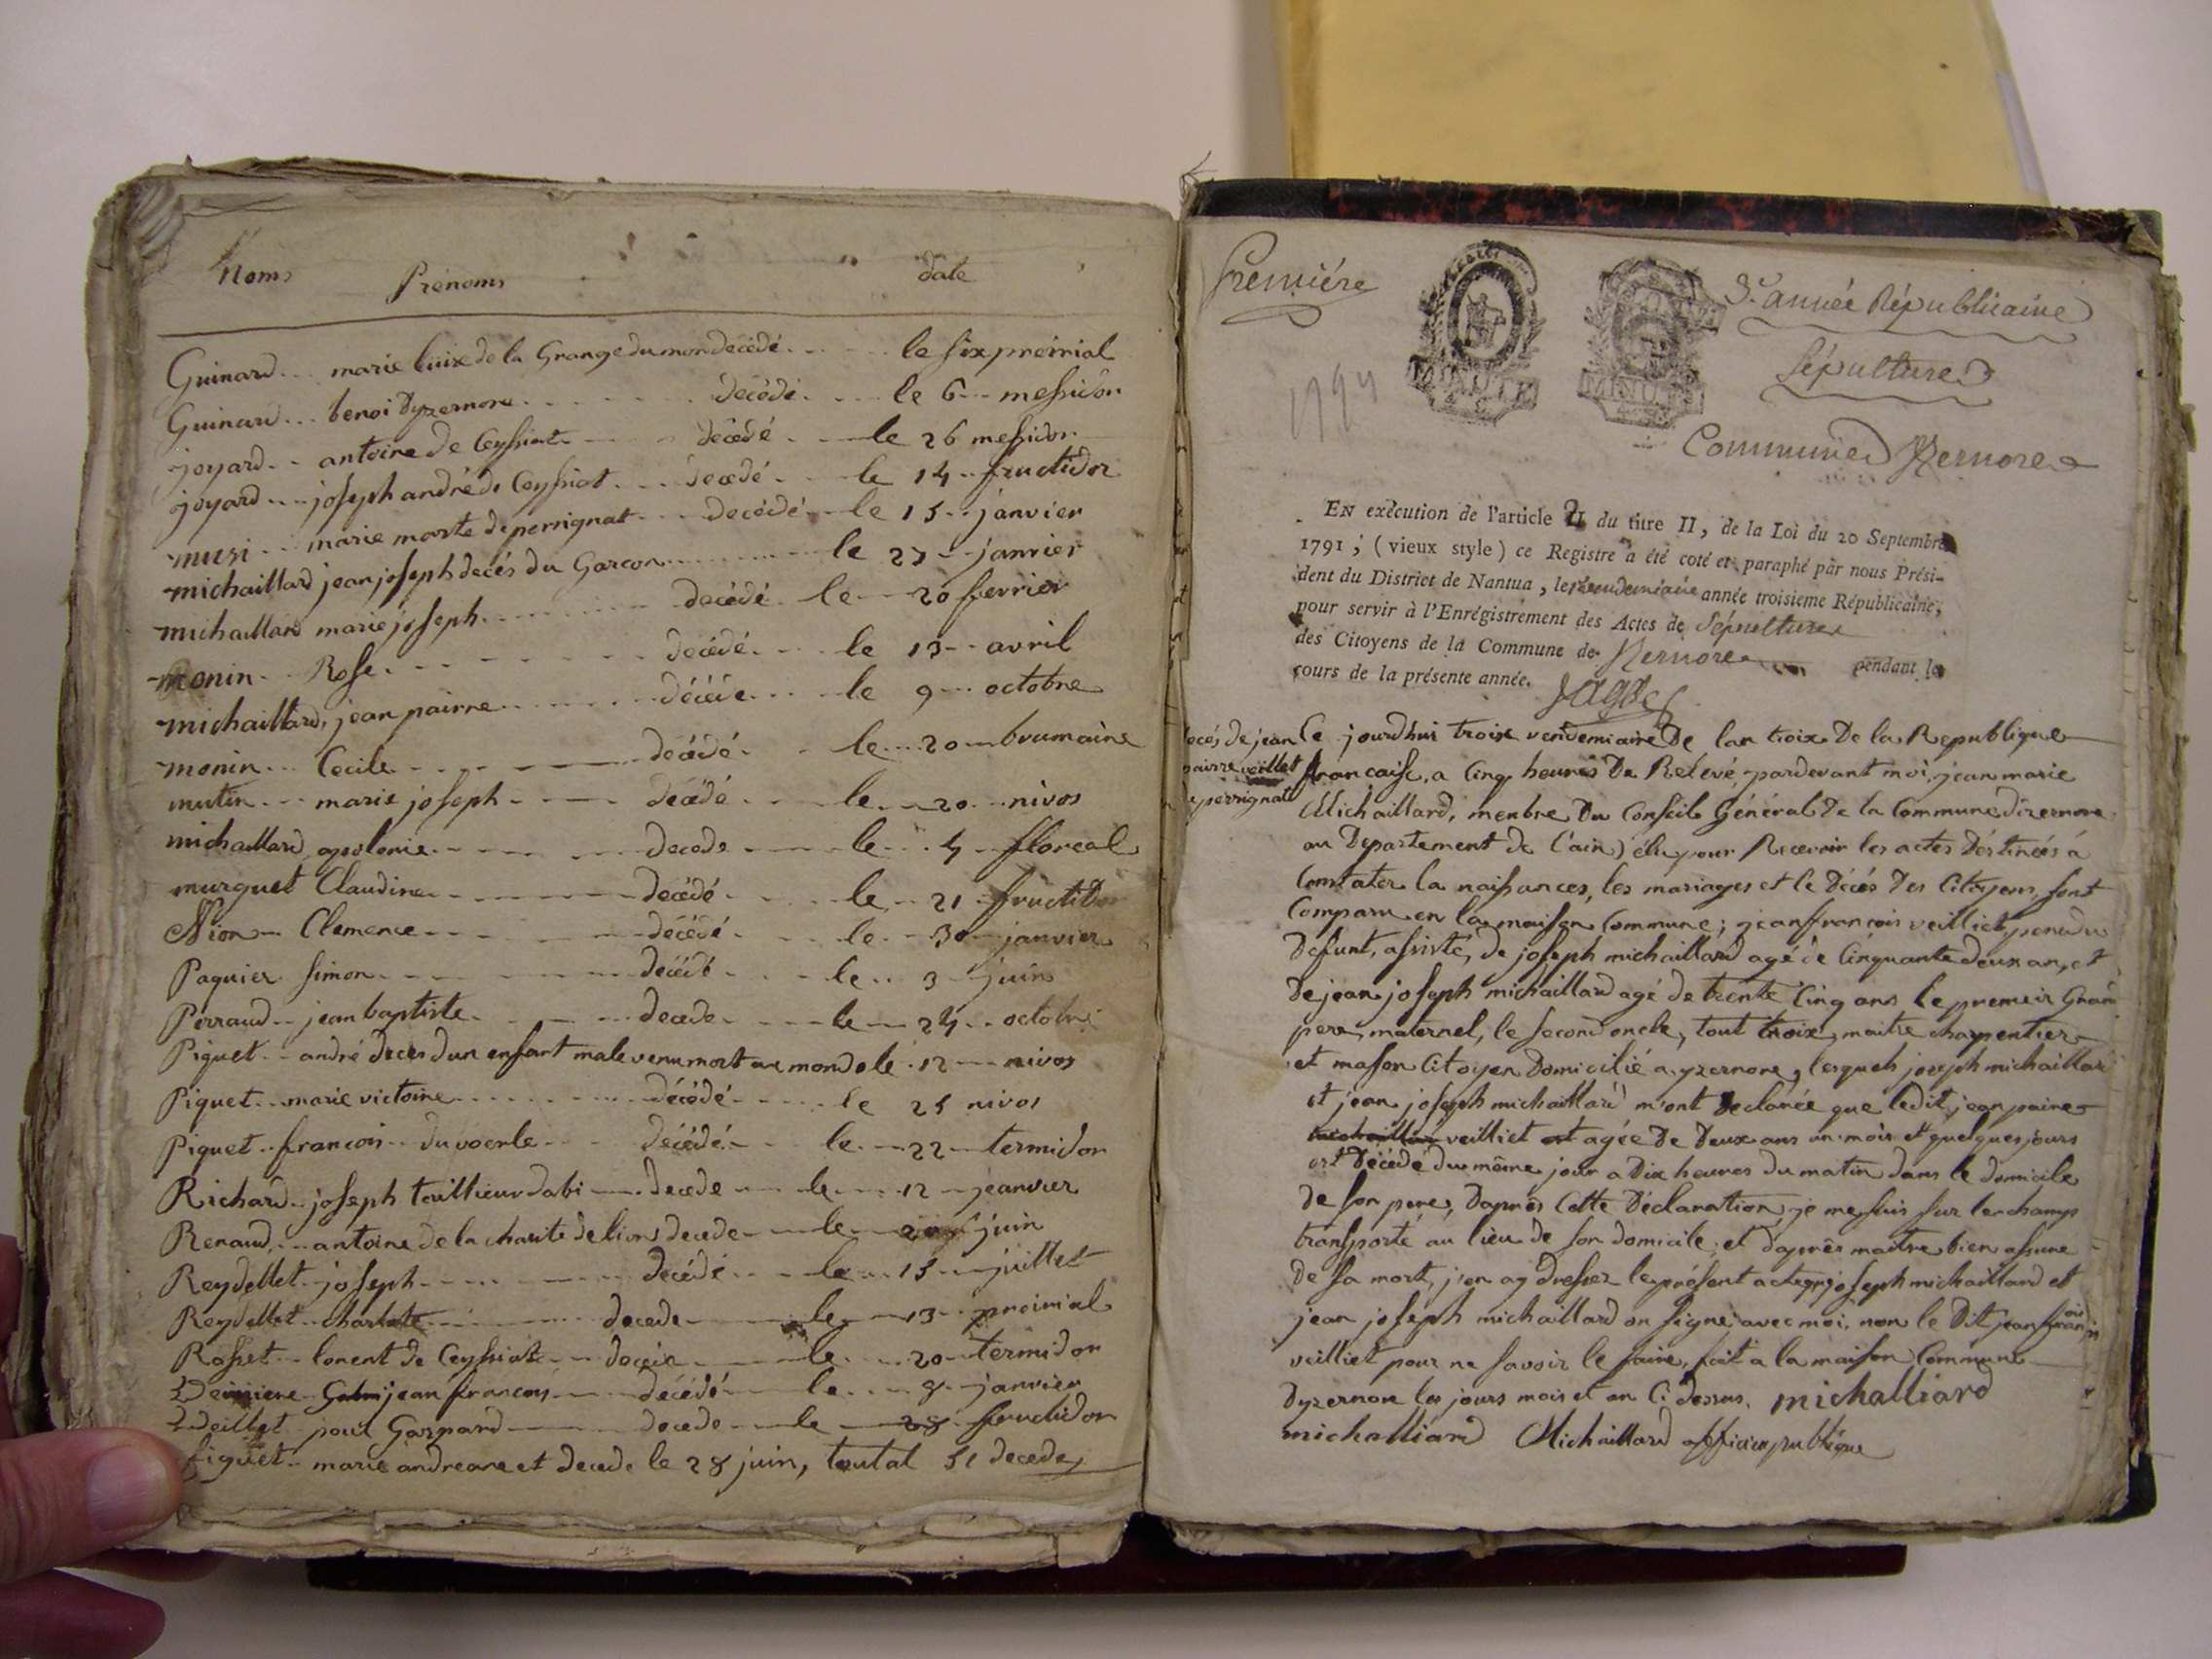 Noms Prénoms date
Guinard marie luix de la Grange du mon décédé le six preirial
Guinard benoi Dyzernore décédé le 6 messidor
joyard antoine de Ceyssiat décédé le 26 messidor
joyard joseph andré de Ceyssiat décédé le 14 fructidor
musi marie marte de perrignat décédé le 15 janvier
michaillard jean joseph decés du Garcon le 27 janvier
michaillard marie joseph décédé le 20 fevrier
monin Rose décédé le 13 avril
michaillard jean pairre décéde le 9 octobre
monin Cecile décédé le 20 brumaire
mutin marie joseph décédé le 20 nivos
michaillard apolonie decede le 4 floreal
murguet Claudine décédé le 21 fructidor
Nion Clemence décédé le 30 janvier
Paquier simon décédé le 3 juin
Perraud jean baptiste decede le 24 octobre
Piquet andré deces dun enfant male venu mort au monde le 12 nivos
Piquet marie victoire décédé le 25 nivos
Piquet francois du voerle décédé le 22 termidor
Richard joseph taillieur dabi decede le 12 jeanvier
Renaud antoine de la charite de lions decede le juin
Reydellet joseph decédé le 15 juillet
Reydellet charlote decede le 13 preirial
Rosset lorent de Ceyssiat le 20 termidor
jean francois décédé le 8 janvier
veillet pour Gaspard decede le 28 fructidor
figuet marie andreane et decede le 28 juin, toutal 51 decede
Premiére
3e année Républicaine
MINUTE MINUTE
Sépultures
1794
Commune D'Izernore
EN exécution de l'article II du titre II, de la Loi du 20 Septembre
1791; (vieux style) ce Registre a été coté et paraphé par nous Prési-
dent du District de Nantua, le vendemiaire année troisieme Républicaine,
pour servir à l'Enrégistrement des Actes de Sépultures
des Citoyens de la Commune de Izernore pendant le
cours de la présente année.
decés de jean
pairre veillet
de perrignat
Ce jourdhui troix vendemiaire De lan troix De la Republique
francaise, a Cinq heures De Relevé, pardevant moi, jean marie
Michaillard, menbre Du Conseil Général De la Commune dizernore
au Departement de l'ain) élu pour Recevoir les actes Déstinéés á
Constater la naissances, les mariages et le Décés Des Citoyens, sont
Comparu en la maison Commune; jean francois veilliet pere du
Defunt, assisté, de joseph michaillard agé de Cinquante deux an, et
De jean joseph michaillard agé de trente Cinq ans le premeir Grand
pere maternel, le second oncle, tout troix, maitre charpentier
et mason Citoyen Domicilié a yzernore, lesquels joseph michaillard
et jean joseph michaillard m'ont Declarée que ledit jean paire
michaillard veilliet est agée De Deux ans un mois et quelques jours
est Décédé du même jour a Dix heures du matin dans le domicile
de son pere, D'aprés Cette Declaration je me suis sur le champ
transporté au lieu de son domicile, et d'aprés maitre bien assuré
De sa mort, j'en ay Dresser le présent acte joseph michaillard et
jean joseph michaillard on signé avec moi, non le Dit jean francois
veilliet pour ne savoir le faire, fait a la maison Commune
Dyzernore les jours mois et an Ci dessus. michalliard
michalliard Michaillard officier publique